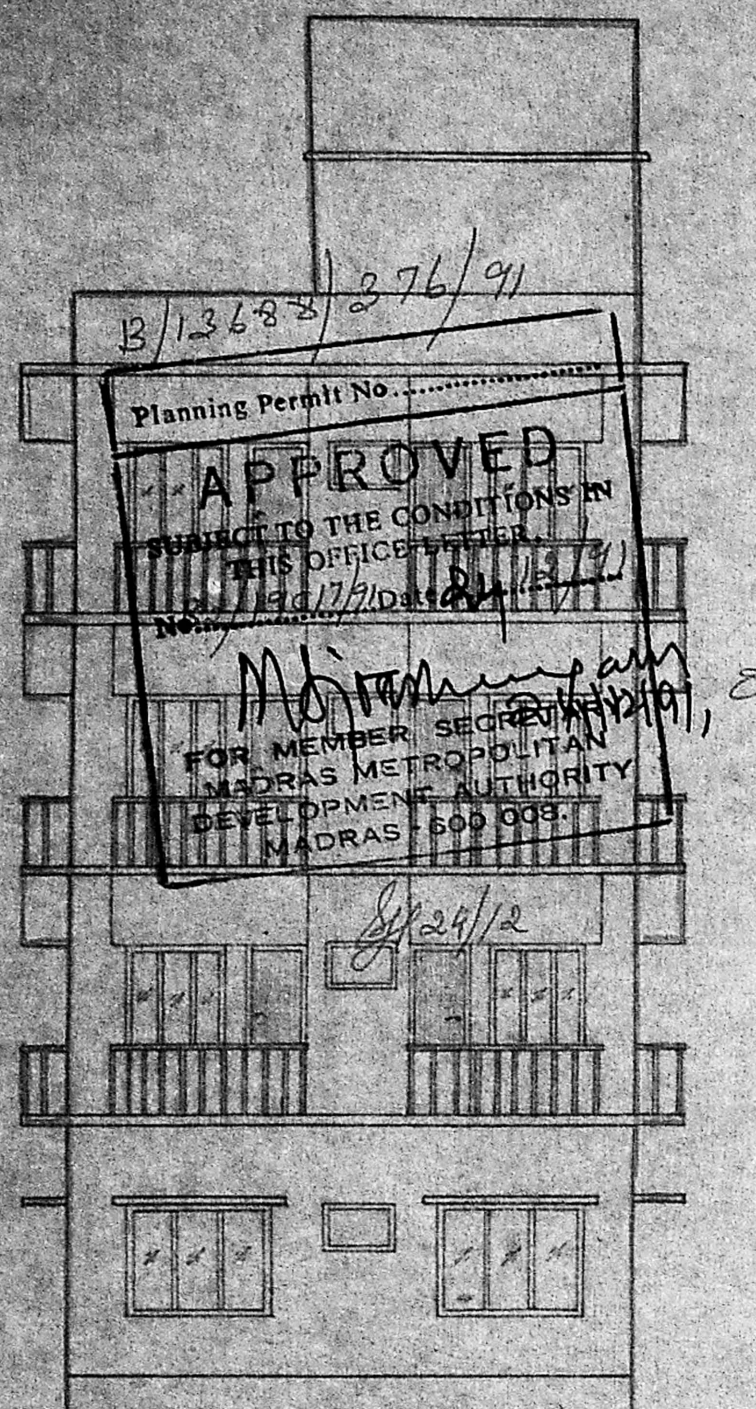 B/13688/376/91
Planning Permit No....................
APPROVED
SUBJECT TO THE CONDITIONS IN
THIS OFFICE LETTER.
No. /19017/91 Date 24/12/91
24/12/91,
FOR MEMBER SECRETARY
MADRAS METROPOLITAN
DEVELOPMENT AUTHORITY
MADRAS - 600 008.
24/12